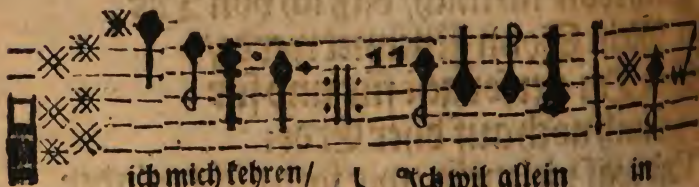 11
ich mich kehren/ Ich wil allein in